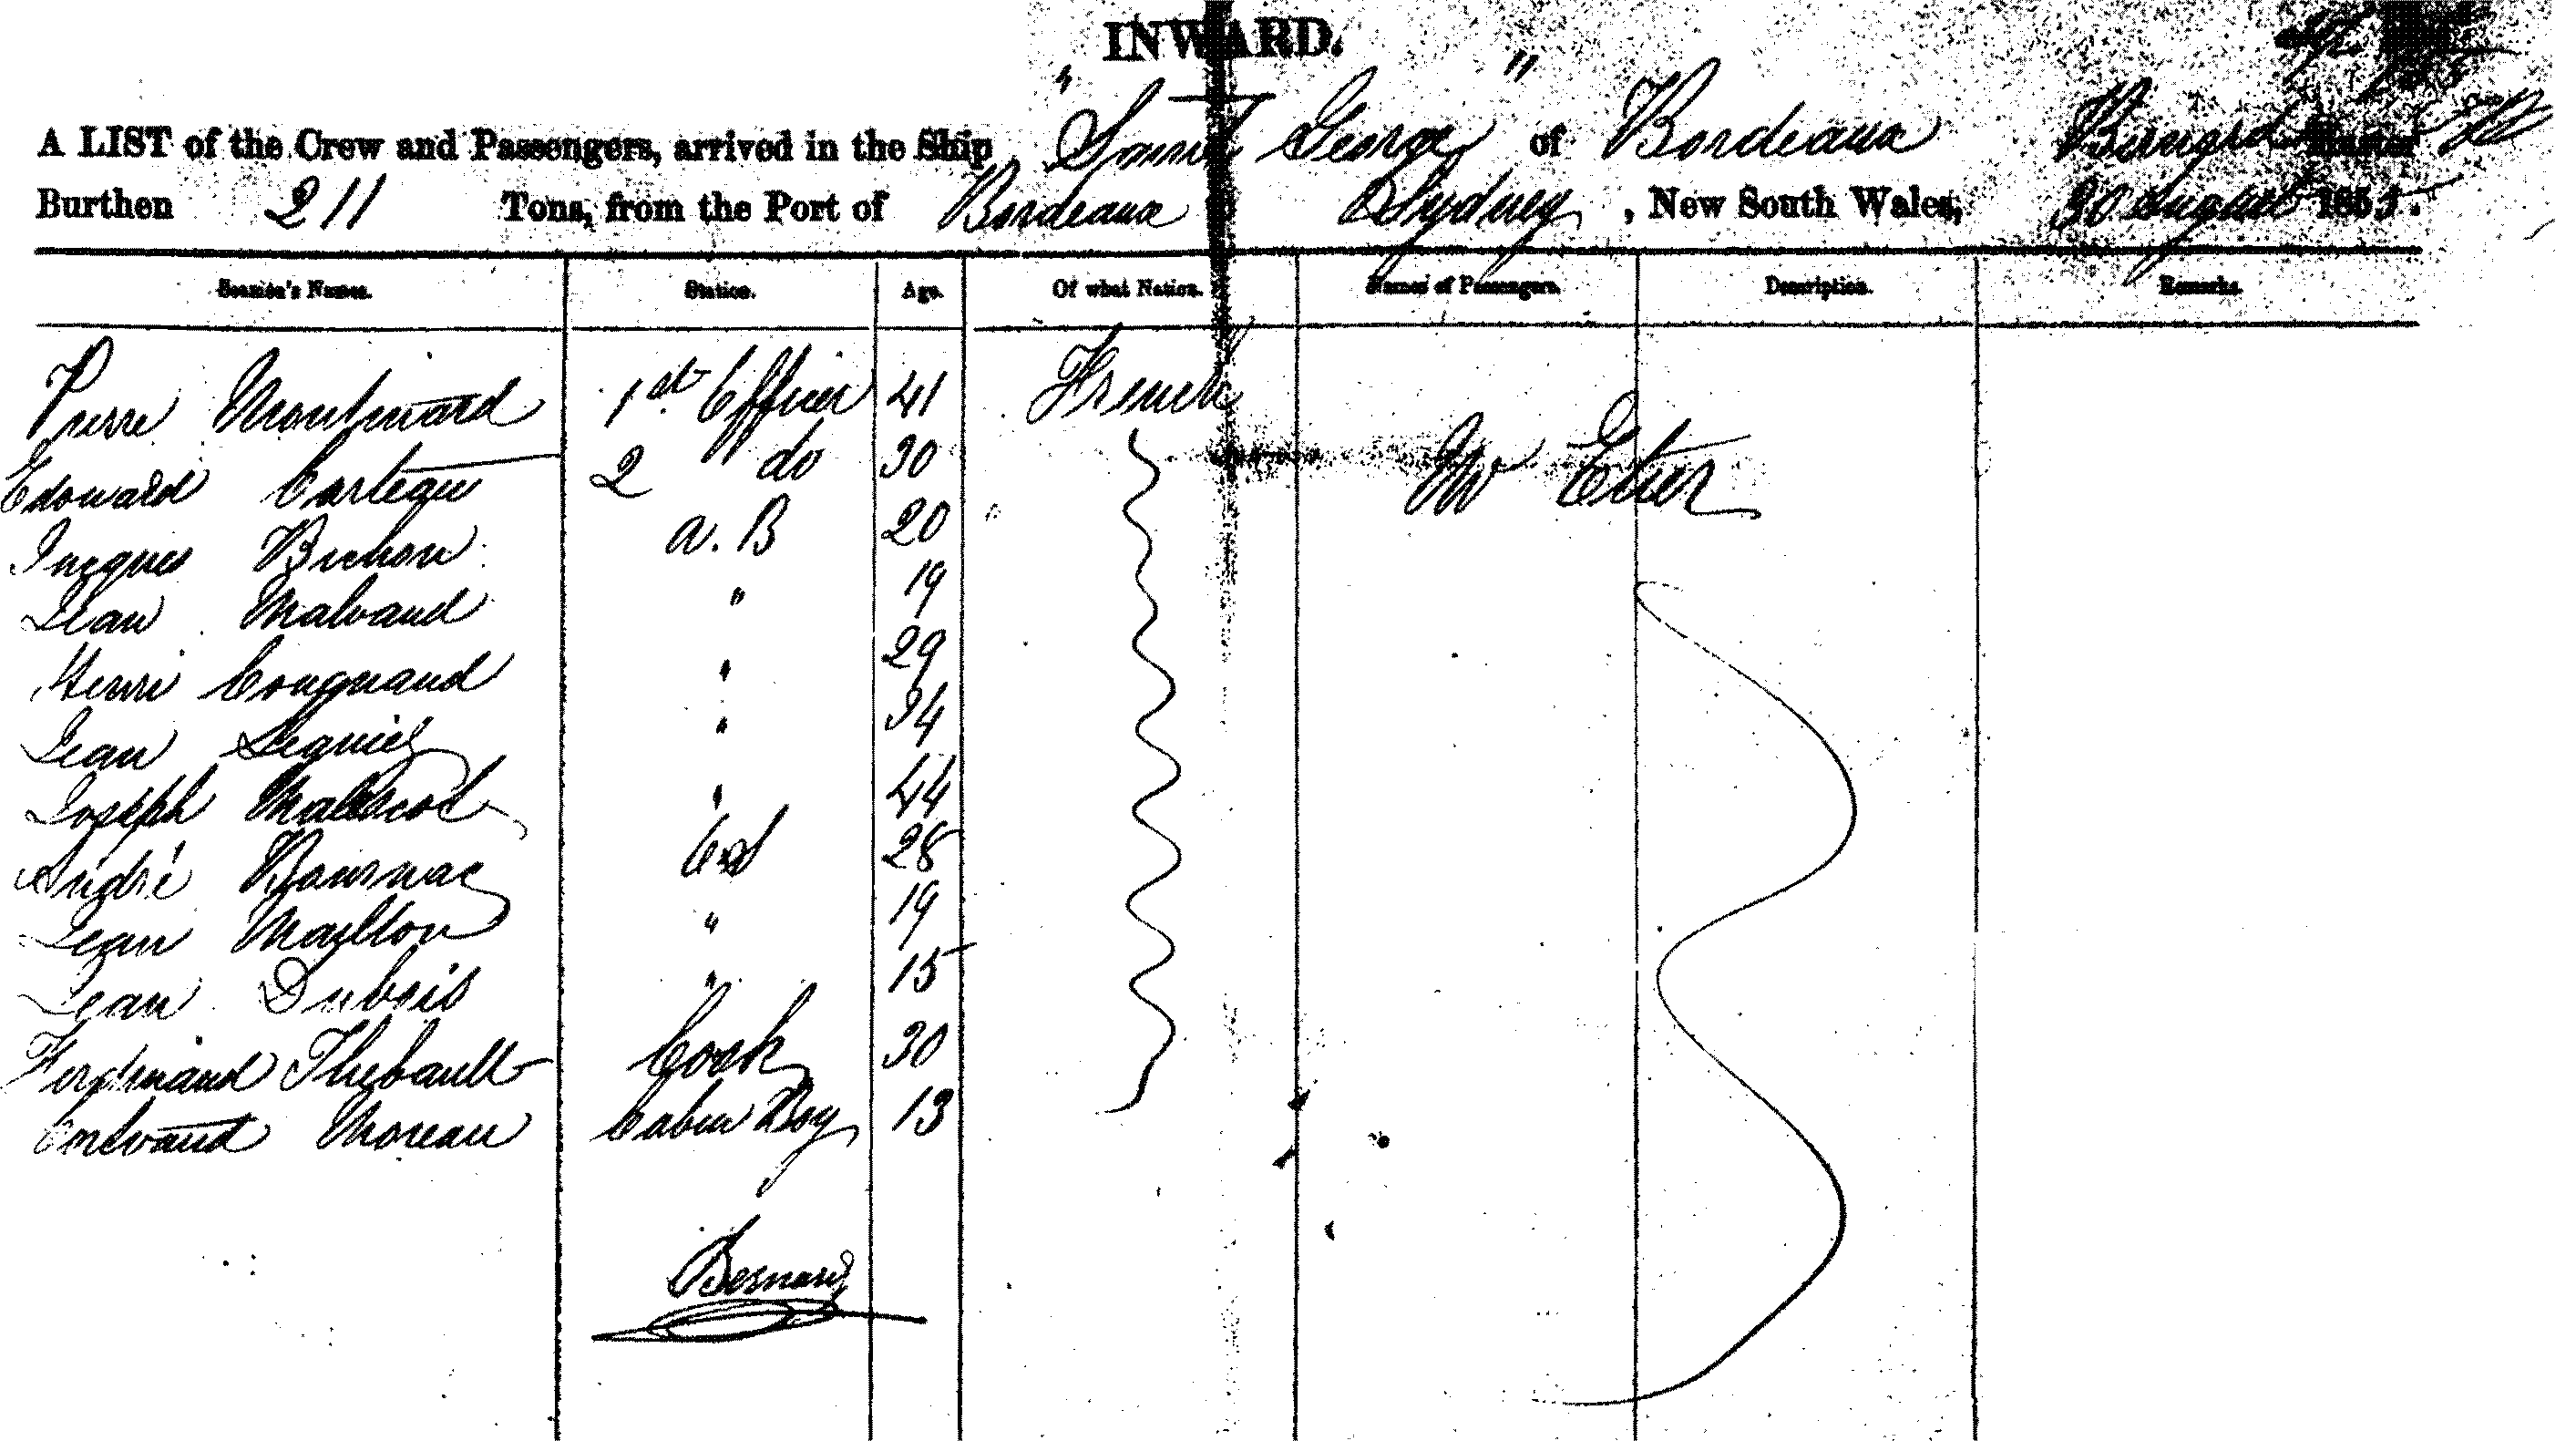 INWARD.
A LIST of the Crew and Passengers, arrived in the Ship "Saint George" of Bordeaux Bernard Master
Burthen 211 Tons, from the Port of Bordeaux to Sydney, New South Wales, 30 August 1855.
Seamen's Names. Station. Age. Of what Nation. Names of Passengers. Description. Remarks.
Pierre 1st Officer 41 French
Edouard 2 do 30 Mr
Jacques Bichon a. B 20
Jean Malvaud " 19
Henri Couquaud " 29
Jean " 34
Joseph " 44
André 28
Jean " 19
Jean Dubois " 15
Ferdinand Thebault Cook 30
Moreau Cabin Boy 13
Besnard